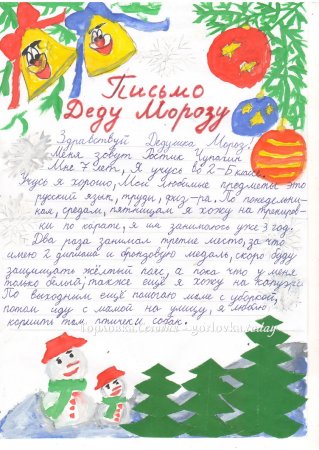 Письмо
Деду Морозу
Здравствуй Дедушка Мороз!
Меня зовут Ростик Чупагин
Мне 7 лет, Я учусь во 2-Б классе.
Учусь я хорошо, Мои Любимые предметы это
русский язык, труды, физ-ра, По понедельни-
кам, средам, пятницам я хожу на трениров-
ки по карате, я им занимаюсь уже 3 год.
Два раза занимал третие место, за что
имею 2 диплома и бронзовую медаль, скоро буду
защищать жёлтый пояс, а пока что у меня
только белый, также ещё я хожу на
По выходным ещё помогаю маме с уборкой,
потом иду с мамой на улицу, я люблю
кормить там птичек и собак.